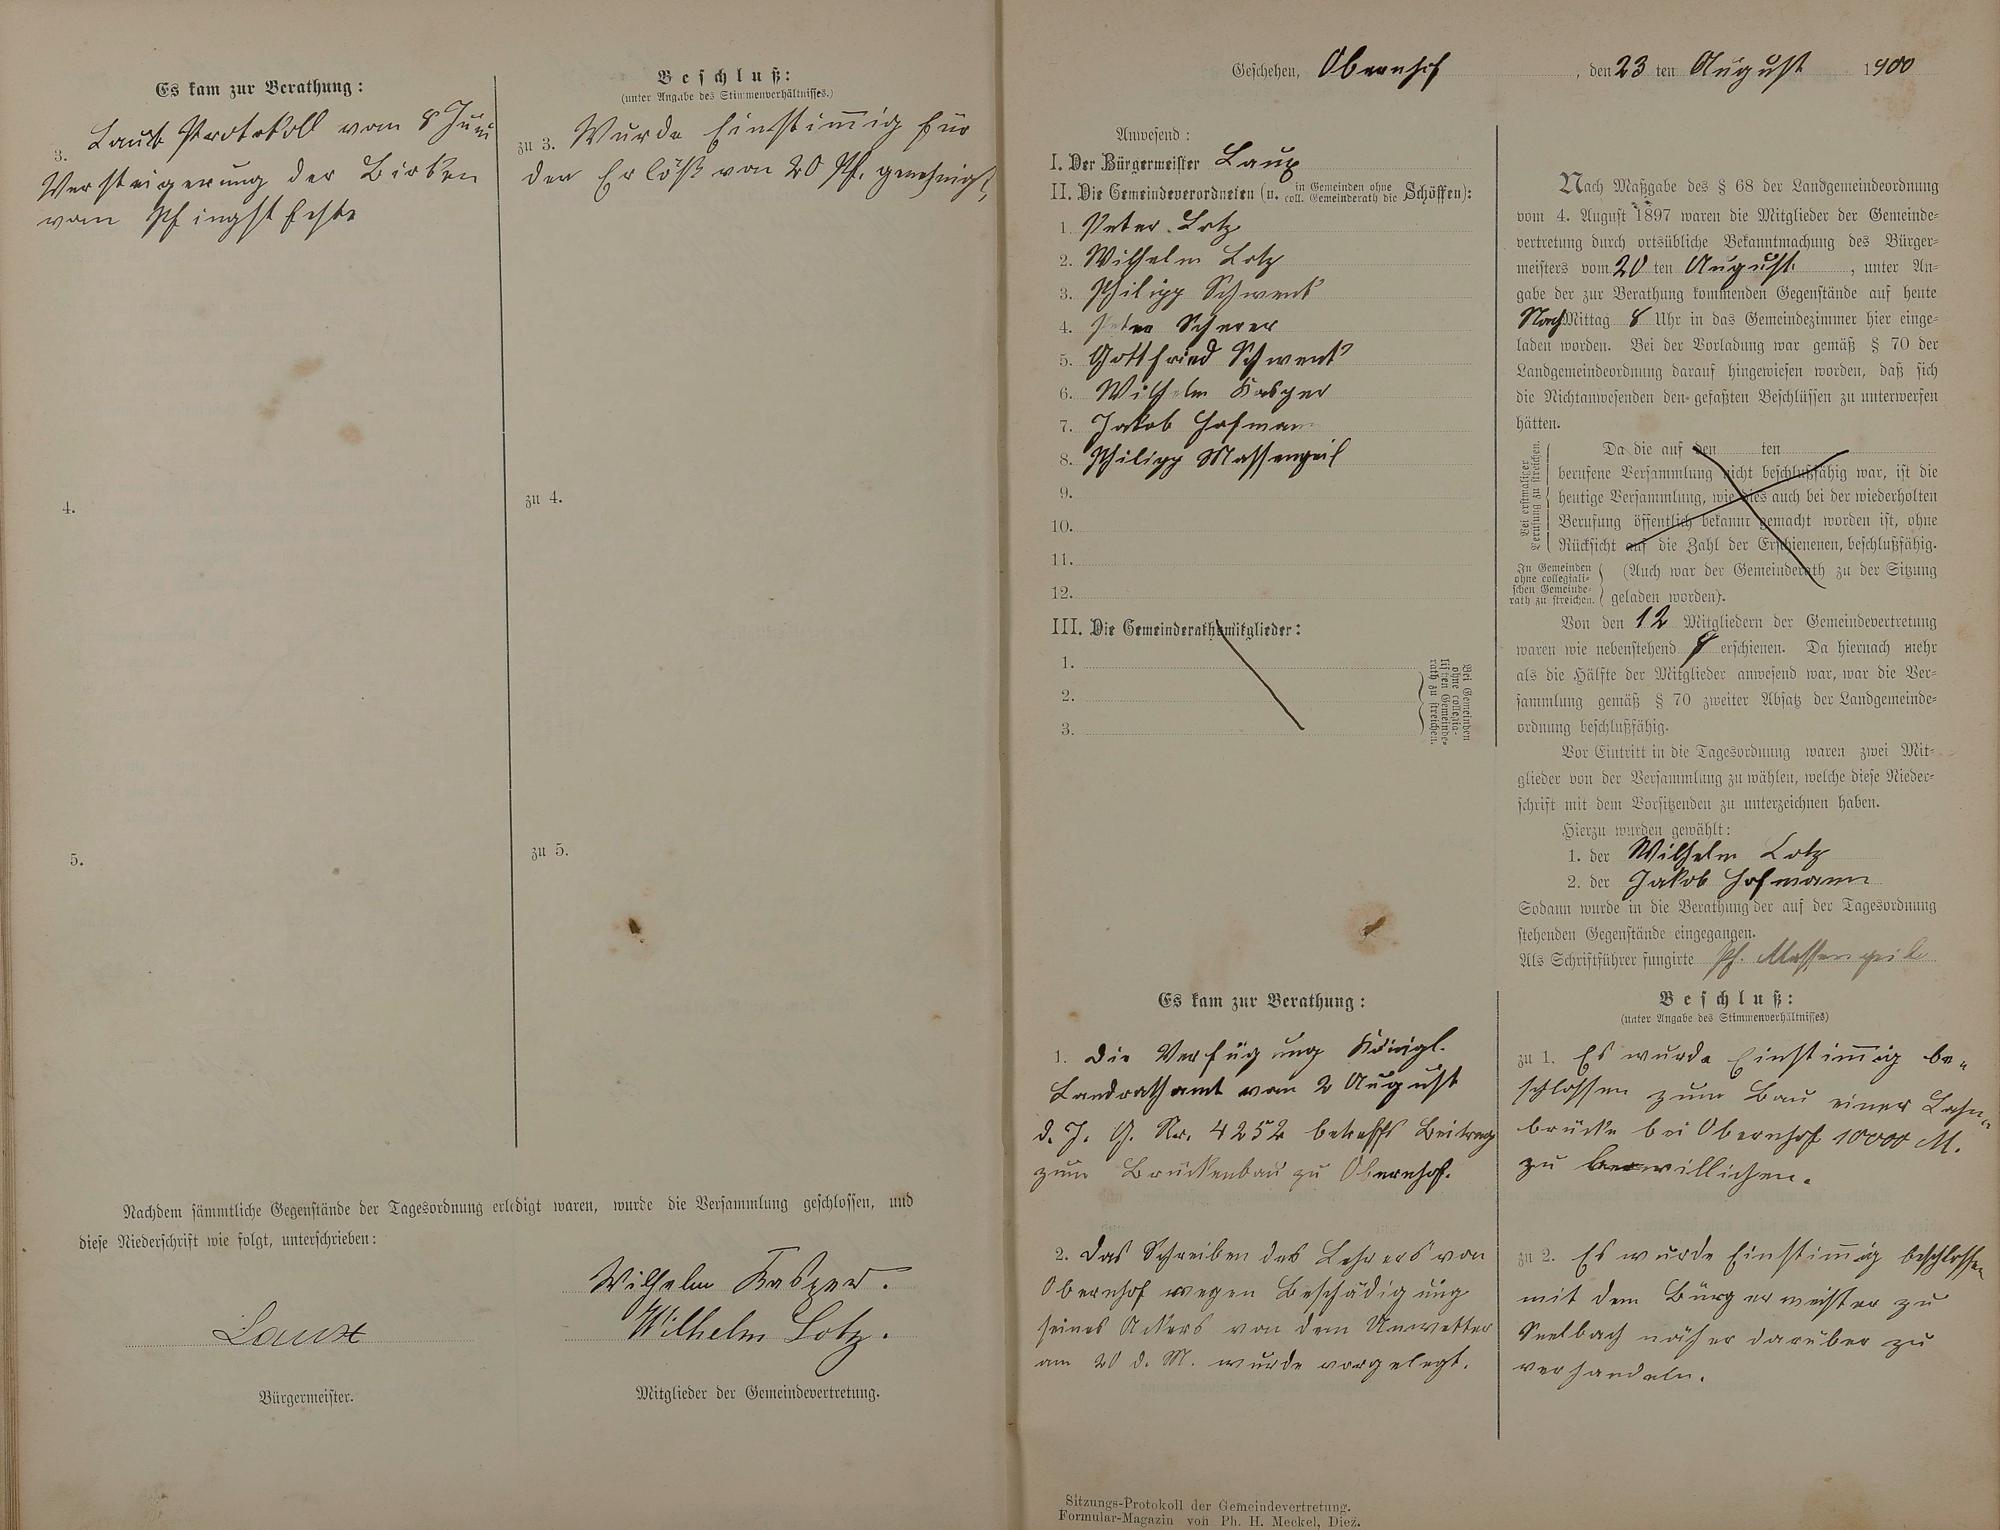 Es kam zur Berathung:
3. Laut Protokoll vom 8 Juni
Versteigerung der Birken
vom Pfingstfeste
4.
5.
Beschluß:
(unter Angabe des Stimmenverhältnisses.)
zu 3. Wurde Einstimmig für
den Erlöß von 20 Pf. genehmigt,
zu 4.
zu 5.
Nachdem sämmtliche Gegenstände der Tagesordnung erledigt waren, wurde die Versammlung geschlossen, und
diese Niederschrift wie folgt, unterschrieben:
Wilhelm Kasper.
Laux
Wilhelm Lotz.
Bürgermeister.
Mitglieder der Gemeindevertretung.
Geschehen, Obernhof, den 23 ten August 1900
Anwesend:
I. Der Bürgermeister Laux
II. Die Gemeindeverordneten (u. in Gemeinden ohne coll. Gemeinderath die Schöffen):
1. Peter Lotz
2. Wilhelm Lotz
3. Philipp Schwenk
4. Peter Scherer
5. Gottfried Schwenk
6. Wilhelm Kasper
7. Jakob Hofmann
8. Philipp Massengeil
9.
10.
11.
12.
III. Die Gemeinderathsmitglieder:
1.
2.
3.
Bei Gemeinden
ohne collegia-
lischen Gemeinde-
rath zu streichen.
Nach Maßgabe des § 68 der Landgemeindeordnung
vom 4. August 1897 waren die Mitglieder der Gemeinde-
vertretung durch ortsübliche Bekanntmachung des Bürger-
meisters vom 20 ten August, unter An-
gabe der zur Berathung kommenden Gegenstände auf heute
Nach Mittag 8 Uhr in das Gemeindezimmer hier einge-
laden worden. Bei der Vorladung war gemäß § 70 der
Landgemeindeordnung darauf hingewiesen worden, daß sich
die Nichtanwesenden den gefaßten Beschlüssen zu unterwerfen
hätten.
Bei erstmaliger
Berufung zu streichen.
Da die auf den ten
berufene Versammlung nicht beschlußfähig war, ist die
heutige Versammlung, wie dies auch bei der wiederholten
Berufung öffentlich bekannt gemacht worden ist, ohne
Rücksicht auf die Zahl der Erschienenen, beschlußfähig.
In Gemeinden
ohne collegiali-
schen Gemeinde-
rath zu streichen.
(Auch war der Gemeinderath zu der Sitzung
geladen worden).
Von den 12 Mitgliedern der Gemeindevertretung
waren wie nebenstehend 8 erschienen. Da hiernach mehr
als die Hälfte der Mitglieder anwesend war, war die Ver-
sammlung gemäß § 70 zweiter Absatz der Landgemeinde-
ordnung beschlußfähig.
Vor Eintritt in die Tagesordnung waren zwei Mit-
glieder von der Versammlung zu wählen, welche diese Nieder-
schrift mit dem Vorsitzenden zu unterzeichnen haben.
Hierzu wurden gewählt:
1. der Wilhelm Lotz
2. der Jakob Hofmann
Sodann wurde in die Berathung der auf der Tagesordnung
stehenden Gegenstände eingegangen.
Als Schriftführer fungirte Ph. Massengeil
Es kam zur Berathung:
1. Die Verfügung Königl.
Landrathsamt vom 2 August
d. J. G. Nr. 4252 betreffs Beitrag
zum Brückenbau zu Obernhof.
2. Das Schreiben des Lehrers von
Obernhof wegen Beschädigung
seines Ackers von dem Unwetter
am 20 d. M. wurde vorgelegt.
Beschluß:
(unter Angabe des Stimmenverhältnisses)
zu 1. Es wurde Einstimmig be-
schlossen zum Bau einer Lahn-
brücke bei Obernhof 10000 M.
zu bewillichen.
zu 2. Es wurde Einstimmig beschlossen
mit dem Bürgermeister zu
Seelbach näher darüber zu
verhandeln.
Sitzungs-Protokoll der Gemeindevertretung.
Formular-Magazin von Ph. H. Meckel, Diez.